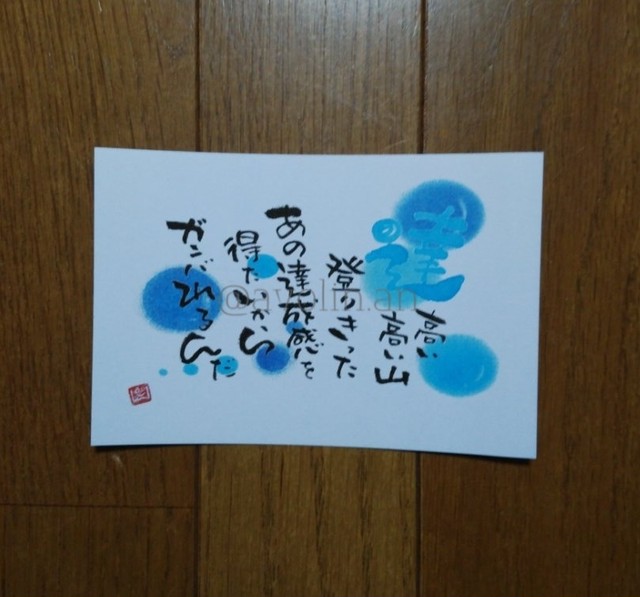 達
高い
高い山
登りきった
あの達成感を
得たから
ガンバれるんだ